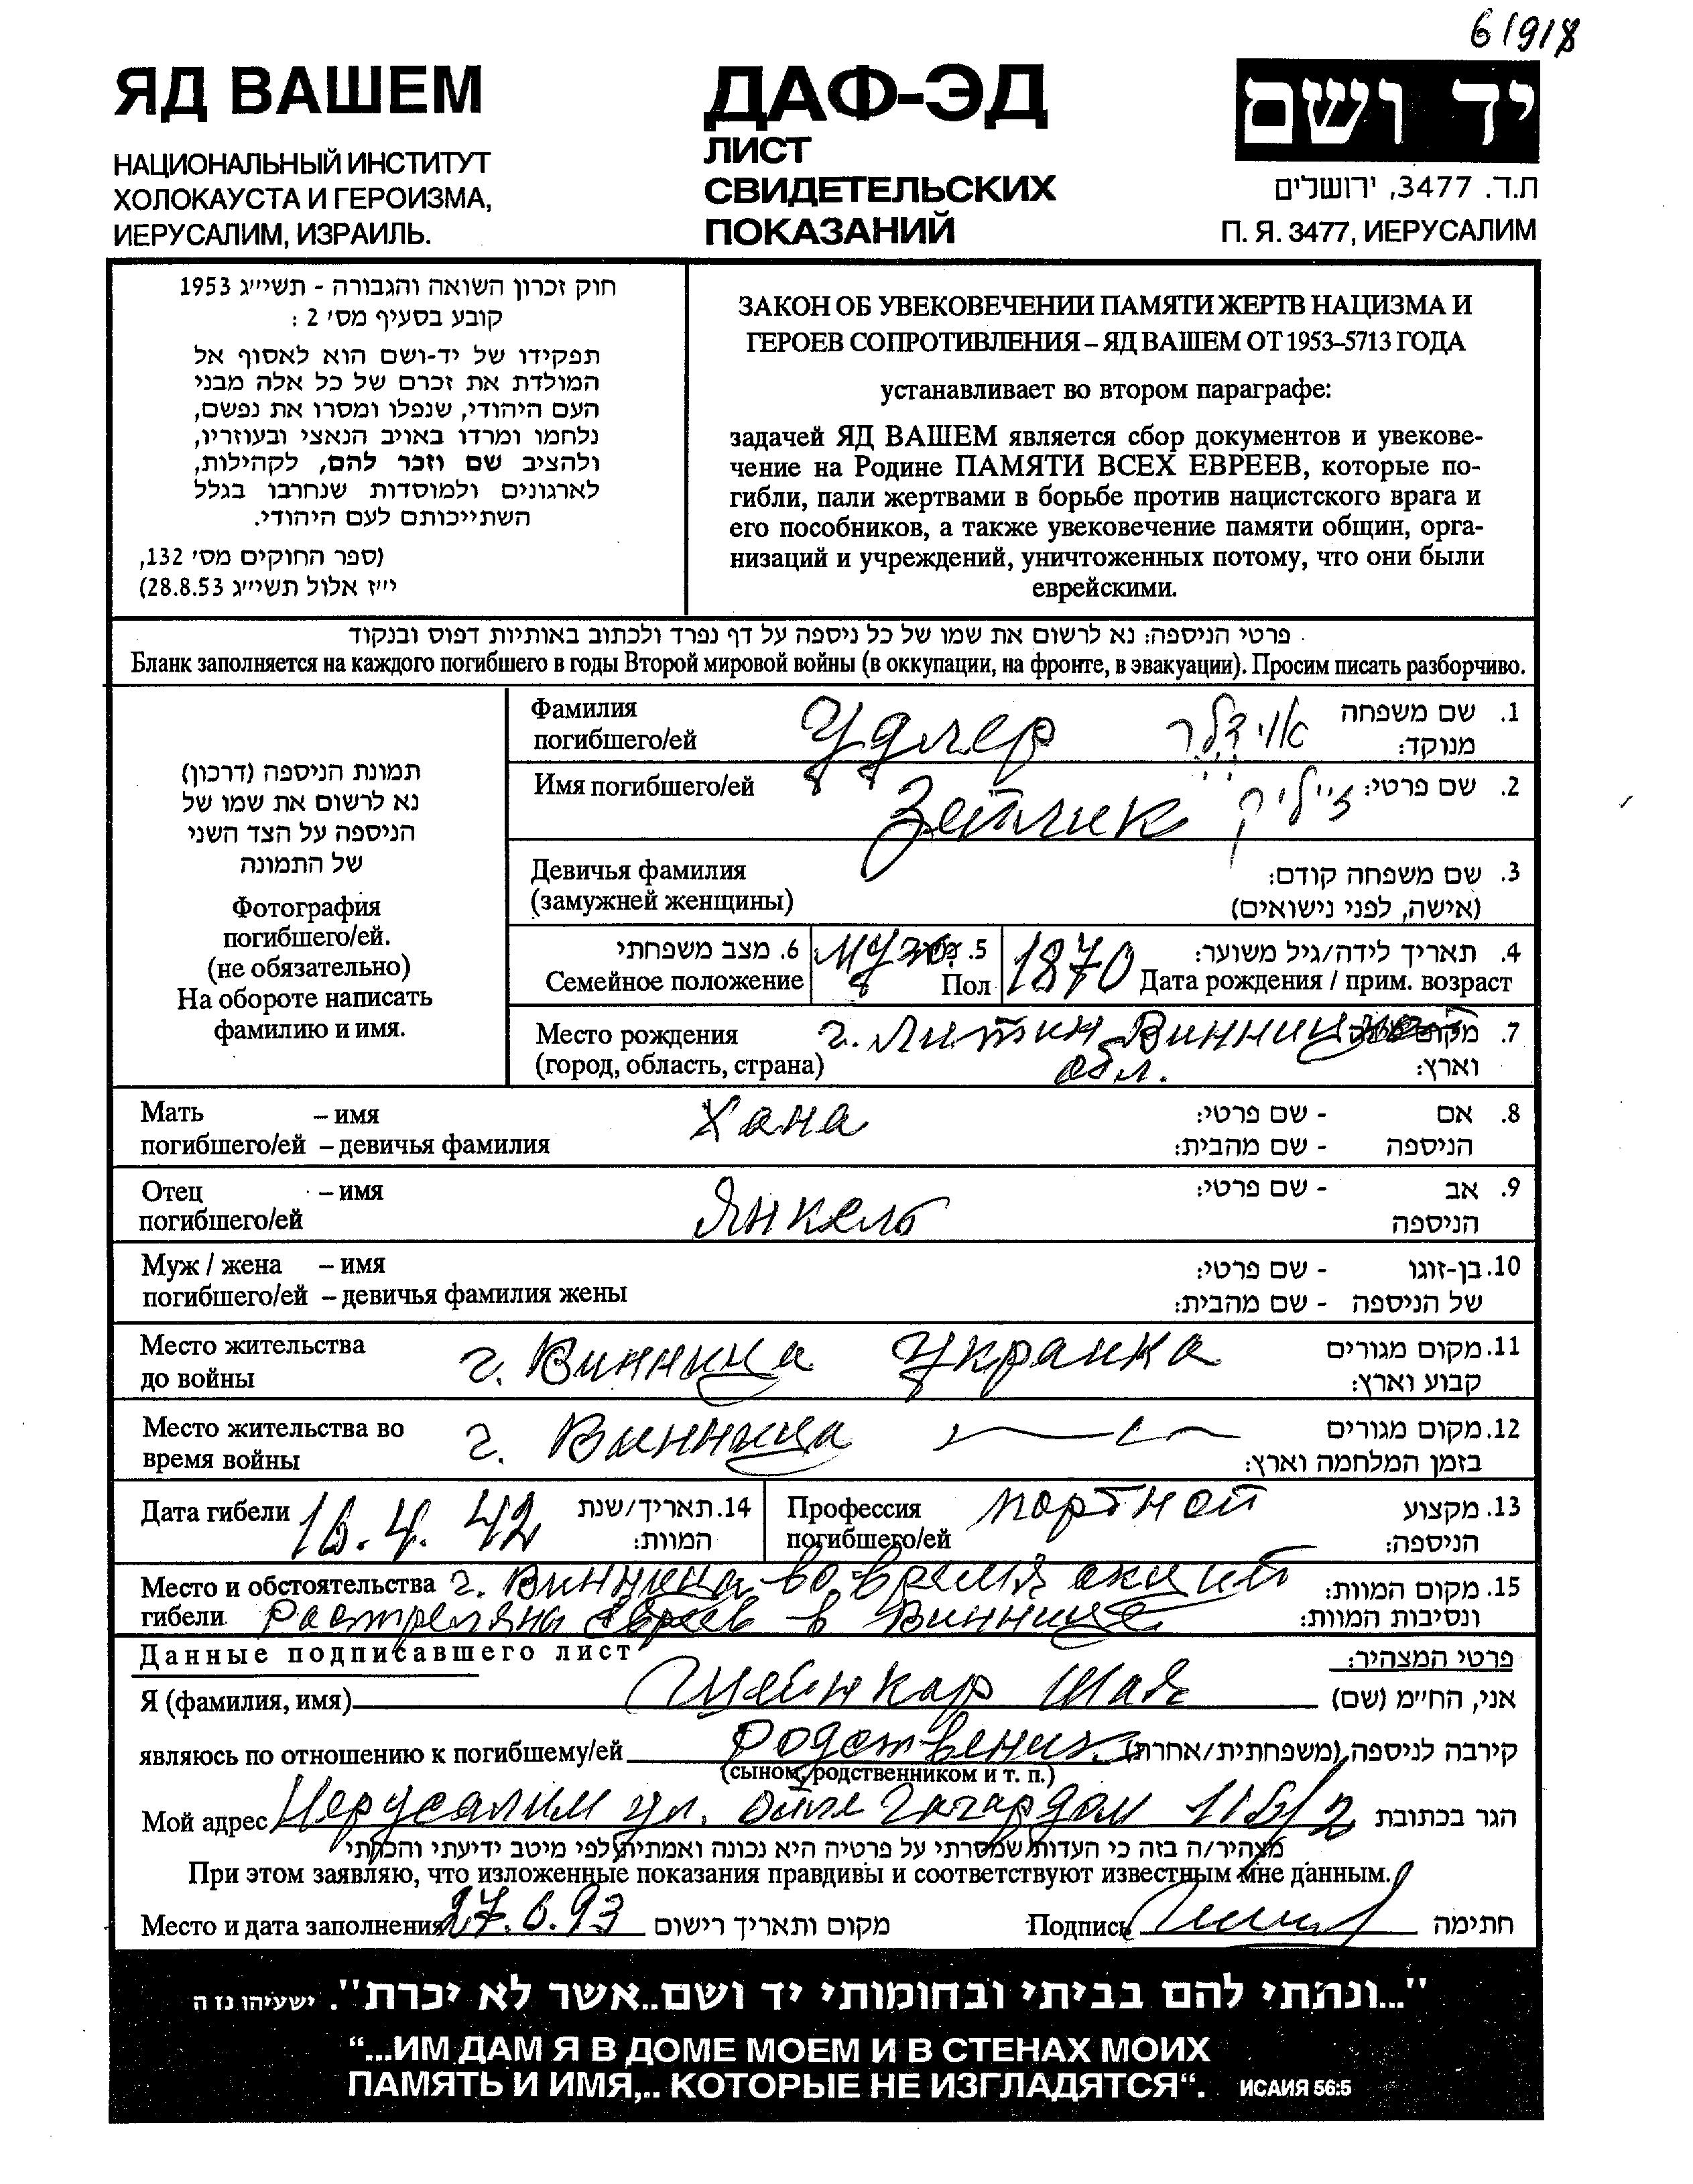 6/9/8
ЯД ВАШЕМ
НАЦИОНАЛЬНЫЙ ИНСТИТУТ
ХОЛОКАУСТА И ГЕРОИЗМА,
ИЕРУСАЛИМ, ИЗРАИЛЬ.
ДАФ-ЭД
ЛИСТ
СВИДЕТЕЛЬСКИХ
ПОКАЗАНИЙ
יד ושם
ת.ד. 3477, ירושלים
П. Я. 3477, ИЕРУСАЛИМ
חוק זכרון השואה והגבורה - תשי״ג 1953
קובע בסעיף מס׳ 2 :
תפקידו של יד-ושם הוא לאסוף אל
המולדת את זכרם של כל אלה מבני
העם היהודי, שנפלו ומסרו את נפשם,
נלחמו ומרדו באויב הנאצי ובעוזריו,
ולהציב שם וזכר להם, לקהילות,
לארגונים ולמוסדות שנחרבו בגלל
השתייכותם לעם היהודי.
(ספר החוקים מס׳ 132,
י״ז אלול תשי״ג 28.8.53)
ЗАКОН ОБ УВЕКОВЕЧЕНИИ ПАМЯТИ ЖЕРТВ НАЦИЗМА И
ГЕРОЕВ СОПРОТИВЛЕНИЯ – ЯД ВАШЕМ ОТ 1953–5713 ГОДА
устанавливает во втором параграфе:
задачей ЯД ВАШЕМ является сбор документов и увекове-
чение на Родине ПАМЯТИ ВСЕХ ЕВРЕЕВ, которые по-
гибли, пали жертвами в борьбе против нацистского врага и
его пособников, а также увековечение памяти общин, орга-
низаций и учреждений, уничтоженных потому, что они были
еврейскими.
פרטי הניספה: נא לרשום את שמו של כל ניספה על דף נפרד ולכתוב באותיות דפוס ובנקוד
Бланк заполняется на каждого погибшего в годы Второй мировой войны (в оккупации, на фронте, в эвакуации). Просим писать разборчиво.
תמונת הניספה (דרכון)
נא לרשום את שמו של
הניספה על הצד השני
של התמונה
Фотография
погибшего/ей.
(не обязательно)
На обороте написать
фамилию и имя.
Фамилия Удлер אוידלר 1. שם משפחה
погибшего/ей מנוקד:
Имя погибшего/ей Зейлик זייליק 2. שם פרטי:
Девичья фамилия 3. שם משפחה קודם:
(замужней женщины) (אישה, לפני נישואים)
6. מצב משפחתי муж. 5. מין 1870 4. תאריך לידה/גיל משוער:
Семейное положение Пол Дата рождения / прим. возраст
Место рождения г. Литин Винницкой 7. מקום לידה
(город, область, страна) обл. וארץ:
Мать – имя Хана 8. אם - שם פרטי:
погибшего/ей – девичья фамилия הניספה - שם מהבית:
Отец – имя Янкель 9. אב - שם פרטי:
погибшего/ей הניספה
Муж / жена – имя 10. בן-זוגו - שם פרטי:
погибшего/ей – девичья фамилия жены של הניספה - שם מהבית:
Место жительства г. Винница Украина 11. מקום מגורים
до войны קבוע וארץ:
Место жительства во г. Винница 12. מקום מגורים
время войны בזמן המלחמה וארץ:
Дата гибели 16.4.42 14. תאריך/שנת המוות: Профессия портной 13. מקצוע
погибшего/ей הניספה:
Место и обстоятельства г. Винница во время акций 15. מקום המוות:
гибели Растреляны евреев в Виннице ונסיבות המוות:
Данные подписавшего лист פרטי המצהיר:
Я (фамилия, имя) Шейнкар Шая אני, הח״מ (שם)
являюсь по отношению к погибшему/ей Родственик. קירבה לניספה (משפחתית/אחרת)
(сыном, родственником и т. п.)
Мой адрес Иерусалим ул. 115/2 הגר בכתובת
מצהיר/ה בזה כי העדות שמסרתי על פרטיה היא נכונה ואמתית לפי מיטב ידיעתי והכרתי
При этом заявляю, что изложенные показания правдивы и соответствуют известным мне данным.
Место и дата заполнения 27.6.93 מקום ותאריך רישום Подпись חתימה
"...ונתתי להם בביתי ובחומותי יד ושם..אשר לא יכרת". ישעיהו נז ה
“...ИМ ДАМ Я В ДОМЕ МОЕМ И В СТЕНАХ МОИХ
ПАМЯТЬ И ИМЯ,.. КОТОРЫЕ НЕ ИЗГЛАДЯТСЯ“. ИСАИЯ 56:5